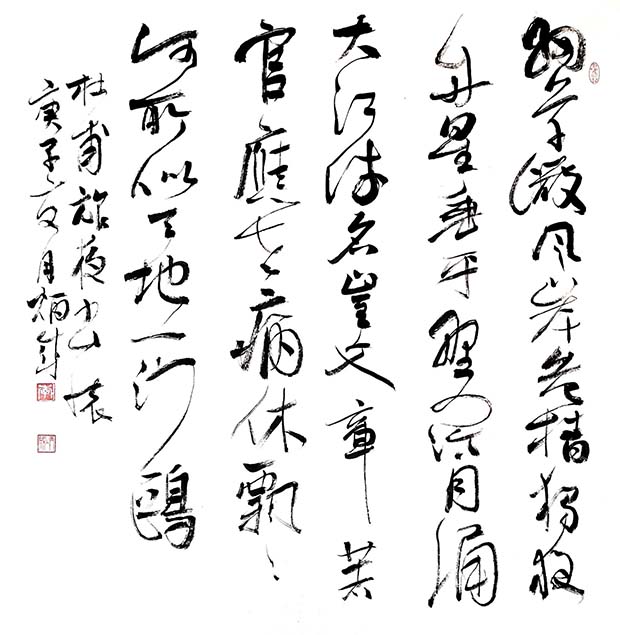 细草微风岸危樯独夜
舟星垂平野阔月涌
大江流名豈文章著
官應老病休飘〻
何所似天地一沙鷗
杜甫旅夜书怀
庚子夏月炳